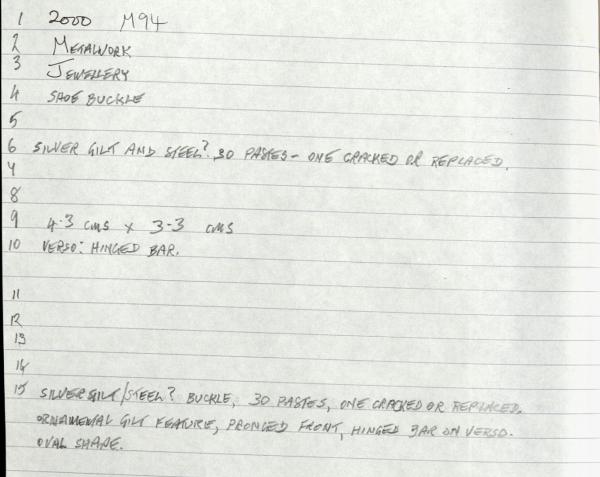 1 2000 M94
2 METALWORK
3 JEWELLERY
4 SHOE BUCKLE
5
6 SILVER GILT AND STEEL? 30 PASTES - ONE CRACKED OR REPLACED.
7
8
9 4.3 cms x 3.3 cms
10 VERSO: HINGED BAR.
11
12
13
14
15 SILVER GILT/STEEL? BUCKLE, 30 PASTES, ONE CRACKED OR REPLACED.
ORNAMENTAL GILT FEATURE, PRONGED FRONT, HINGED BAR ON VERSO.
OVAL SHAPE.